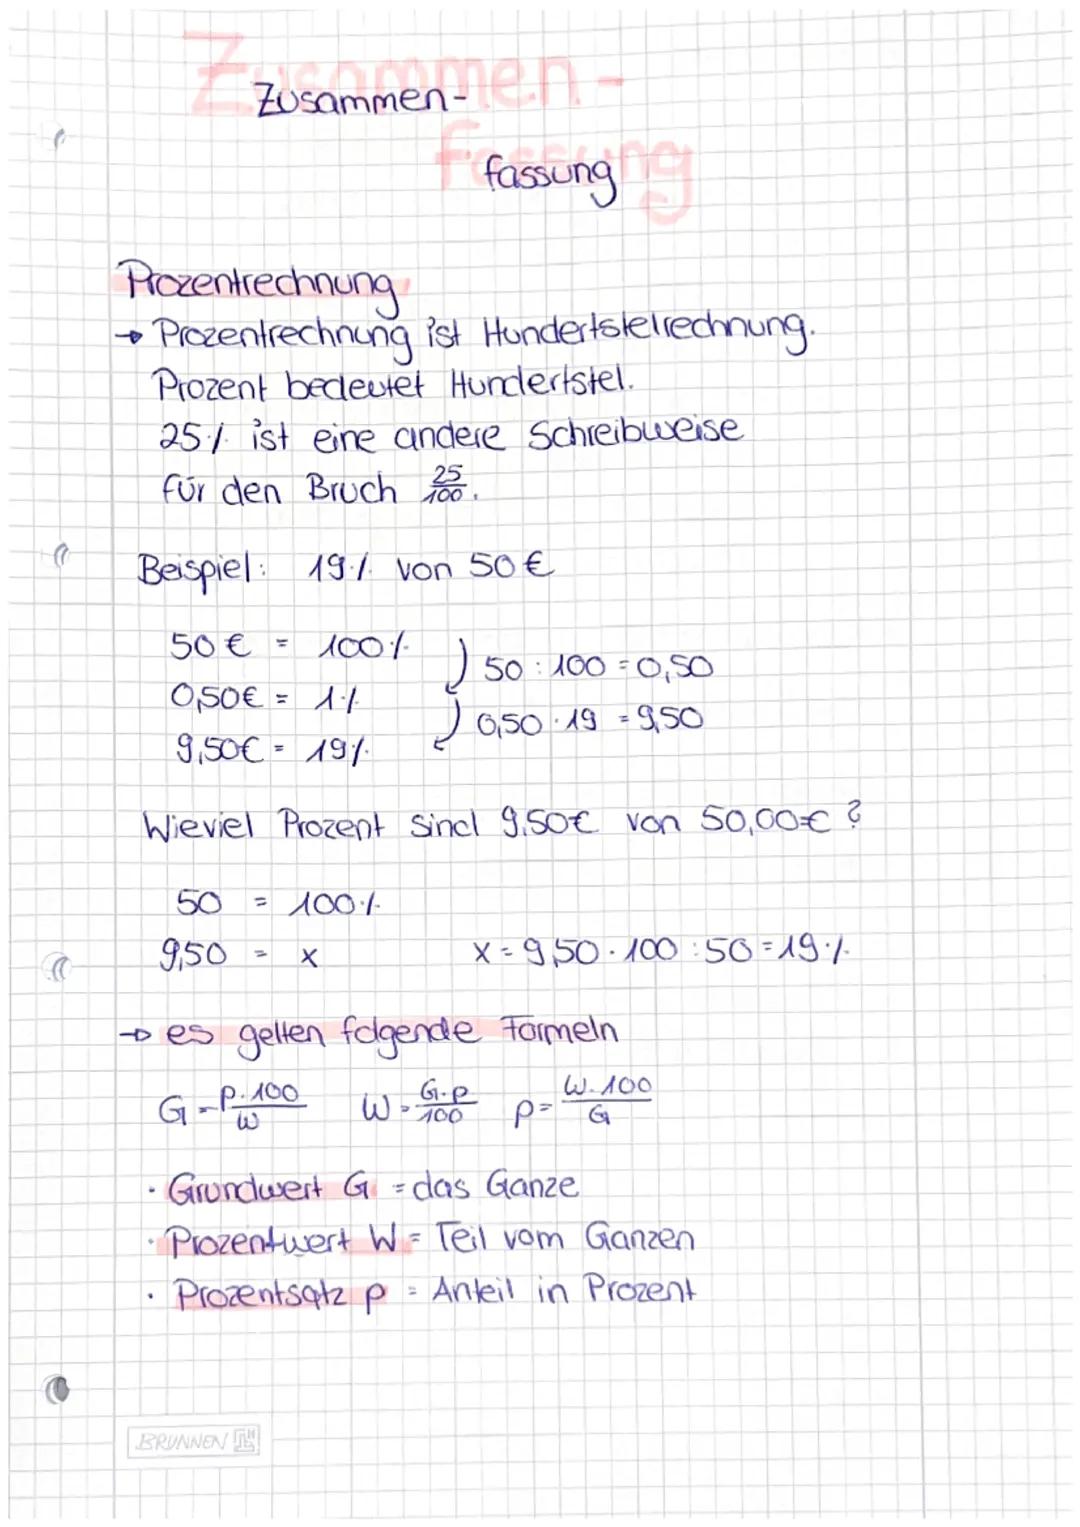 Zusammen-
fassung
Prozentrechnung
→ Prozentrechnung ist Hundertstelrechnung.
Prozent bedeutet Hundertstel.
25% ist eine andere Schreibweise
für den Bruch 25/100.
Beispiel: 19% von 50€
50€ = 100%
50 : 100 = 0,50
0,50€ = 1%
0,50 · 19 = 9,50
9,50€ = 19%
Wieviel Prozent sind 9,50€ von 50,00€?
50 = 100%
9,50 = x x = 9,50 · 100 : 50 = 19%
→ es gelten folgende Formeln
G = p·100/W W = G·p/100 p = W·100/G
· Grundwert G = das Ganze
· Prozentwert W = Teil vom Ganzen
· Prozentsatz p = Anteil in Prozent
BRUNNEN